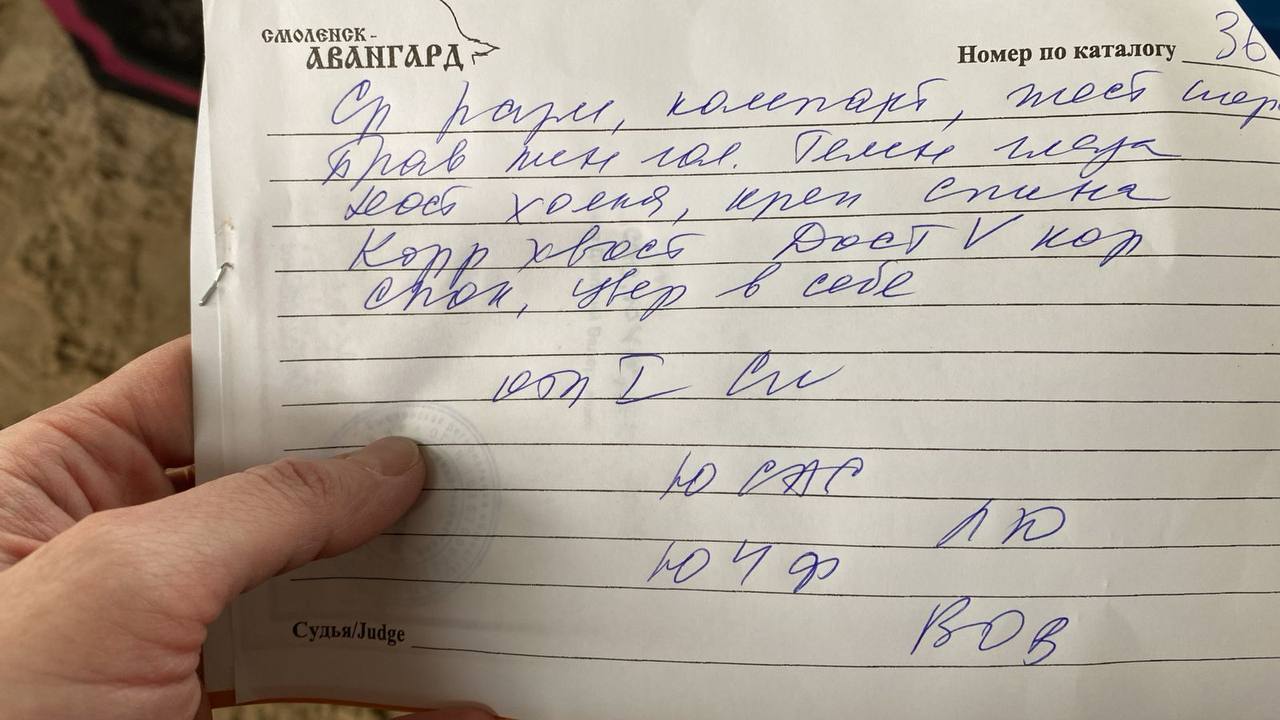 СМОЛЕНСК-
АВАНГАРД
Номер по каталогу 36
Ср разм, компакт, жест шер
прав жен гол. Темн глаза
дост холка, креп спина
Корр хвост Дост V кор
спок, увер в себе
отл I Сu
Ю САС
ЛЮ
Ю Ч Ф
ВОв
Судья/Judge